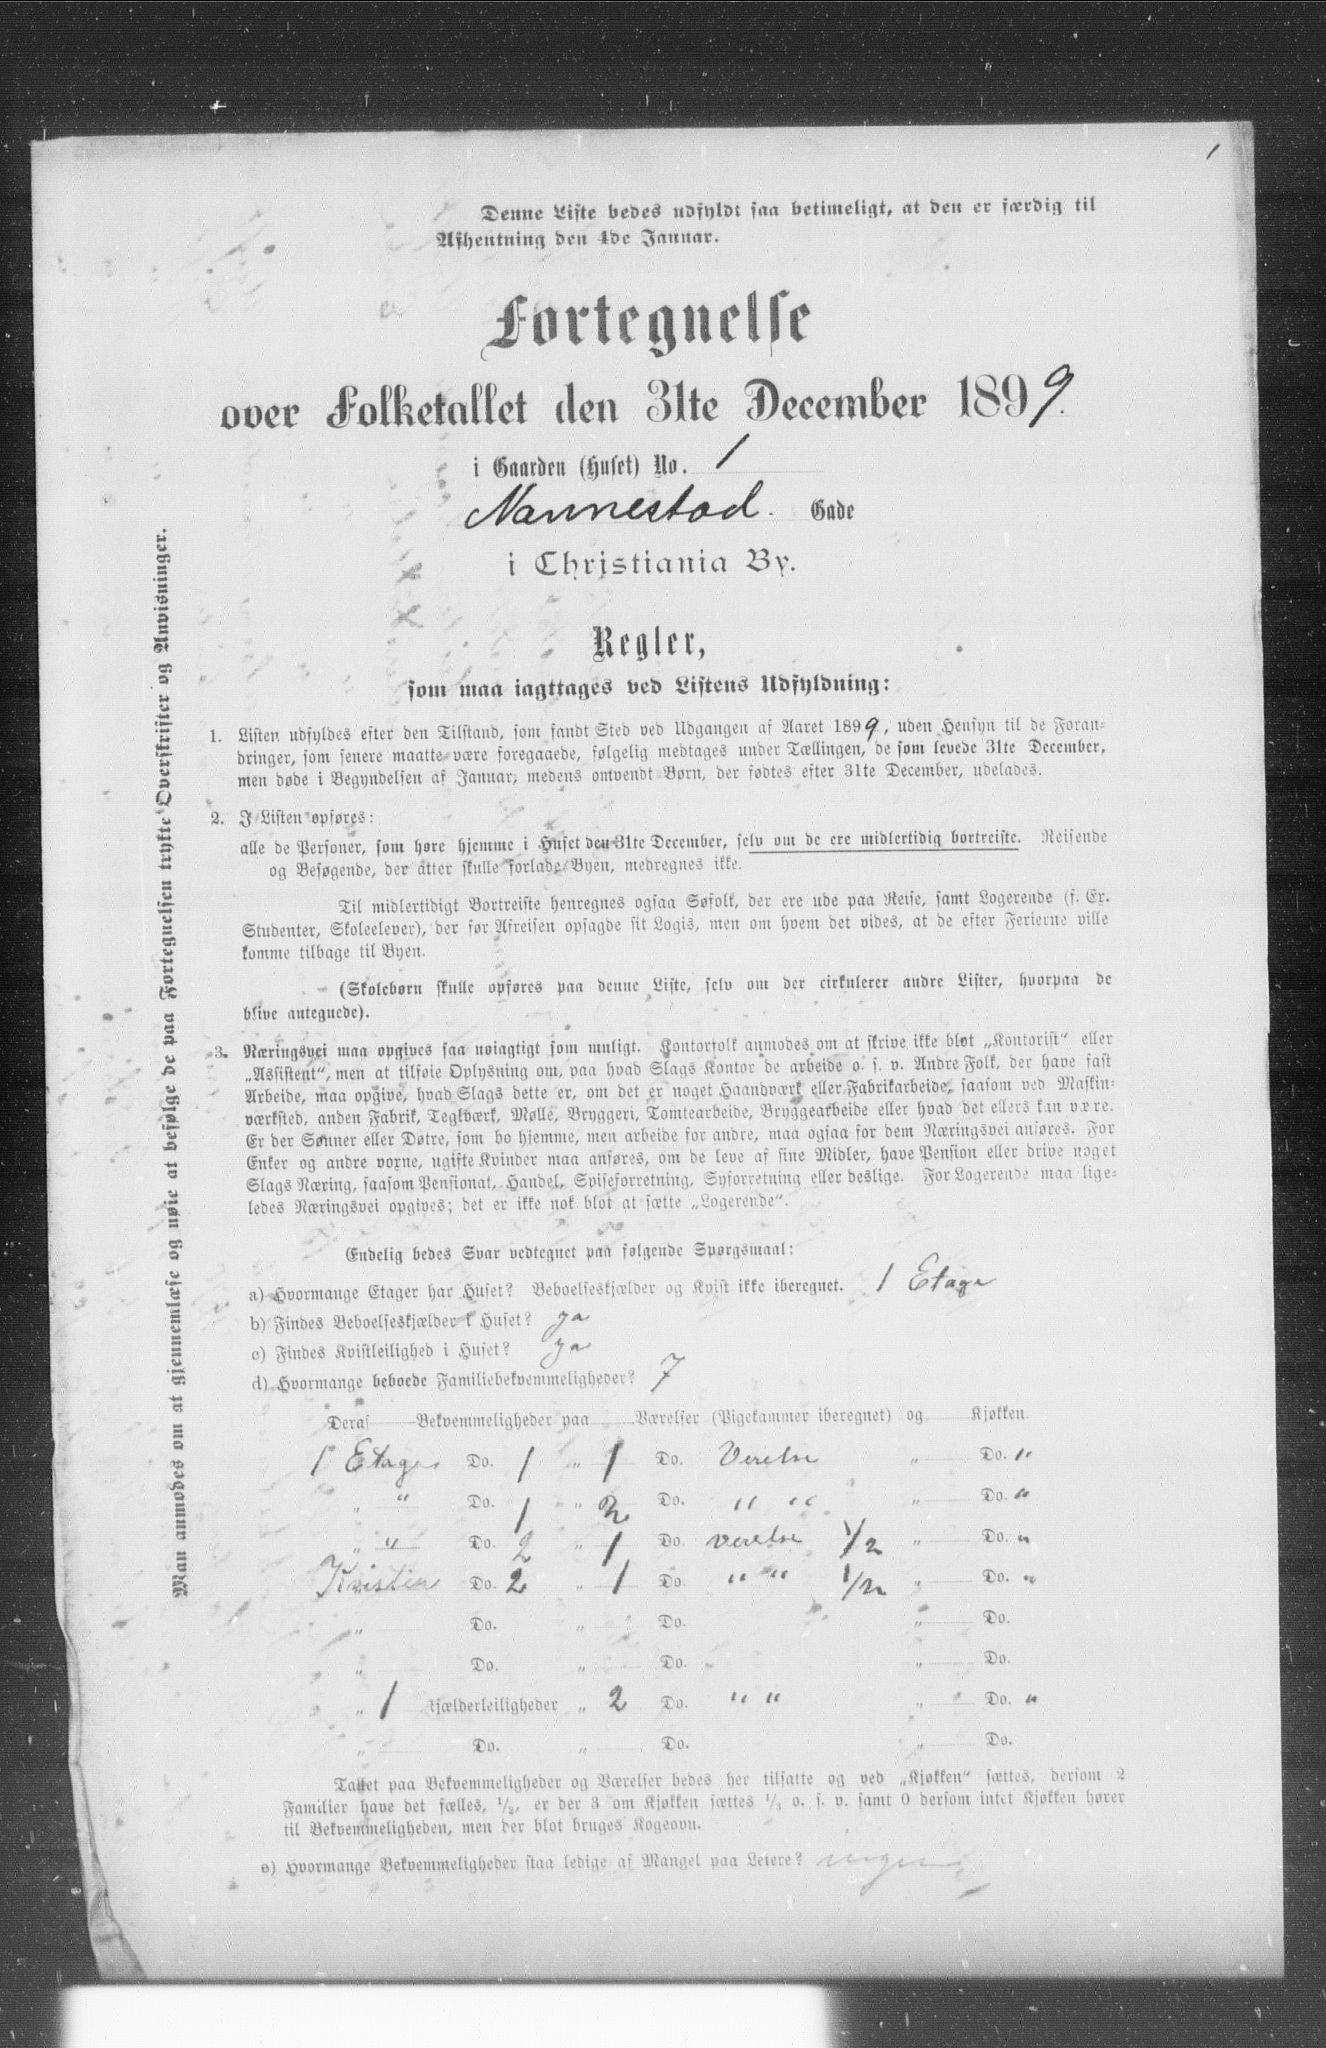 1
Denne Liste bedes udfyldt saa betimeligt, at den er færdig til
Afhentning den 4de Januar.
Fortegnelse
over Folketallet den 31te December 1899.
i Gaarden (Huset) No. 1
Nannestad. Gade
i Christiania By.
Regler,
som maa iagttages ved Listens Udfyldning:
1. Listen udfyldes efter den Tilstand, som fandt Sted ved Udgangen af Aaret 1899, uden Hensyn til de Foran-
dringer, som senere maatte være foregaaede, følgelig medtages under Tællingen, de som levede 31te December,
men døde i Begyndelsen af Januar, medens omvendt Børn, der fødtes efter 31te December, udelades.
2. I Listen opføres:
alle de Personer, som høre hjemme i Huset den 31te December, selv om de ere midlertidig bortreiste. Reisende
og Besøgende, der atter skulle forlade Byen, medregnes ikke.
Til midlertidigt Bortreiste henregnes ogsaa Søfolk, der ere ude paa Reise, samt Logerende (f. Ex.
Studenter, Skoleelever), der før Afreisen opsagde sit Logis, men om hvem det vides, at de efter Ferierne ville
komme tilbage til Byen.
(Skolebørn skulle opføres paa denne Liste, selv om der cirkulerer andre Lister, hvorpaa de
blive antegnede).
3. Næringsvei maa opgives saa nøiagtigt som muligt. Kontorfolk anmodes om at skrive ikke blot „Kontorist“ eller
„Assistent“, men at tilføie Oplysning om, paa hvad Slags Kontor de arbeide o. s. v. Andre Folk, der have fast
Arbeide, maa opgive, hvad Slags dette er, om det er noget Haandværk eller Fabrikarbeide, saasom ved Maskin-
værksted, anden Fabrik, Teglværk, Mølle, Bryggeri, Tomtearbeide, Bryggearbeide eller hvad det ellers kan være.
Er der Sønner eller Døtre, som bo hjemme, men arbeide for andre, maa ogsaa for dem Næringsvei anføres. For
Enker og andre voxne, ugifte Kvinder maa anføres, om de leve af sine Midler, have Pension eller drive noget
Slags Næring, saasom Pensionat, Handel, Spiseforretning, Syforretning eller deslige. For Logerende maa lige-
ledes Næringsvei opgives; det er ikke nok blot at sætte „Logerende“.
Endelig bedes Svar vedtegnet paa følgende Spørgsmaal:
a) Hvormange Etager har Huset? Beboelseskjælder og Kvist ikke iberegnet. 1 Etage
b) Findes Beboelseskjælder i Huset? ja
c) Findes Kvistleilighed i Huset? ja
d) Hvormange beboede Familiebekvemmeligheder? 7
Deraf Bekvemmeligheder paa Værelser (Pigekammer iberegnet) og Kjøkken
1 Etage Do. 1 „ 1 Do. Verelse „ Do. "
„ " Do. 1 „ 2 Do. " " „ Do. "
„ " Do. 2 „ 1 Do. verelse 1/2 „ Do. "
Kvisten Do. 2 „ 1 Do. " " 1/2 „ Do. "
„ Do. „ Do. „ Do.
„ Do. „ Do. „ Do.
„ 1 Kjælderleiligheder „ 2 Do. " " „ Do. "
„ Do. „ Do. „ Do.
Tallet paa Bekvemmeligheder og Værelser bedes her tilsatte og ved „Kjøkken“ sættes, dersom 2
Familier have det fælles, 1/2, er der 3 om Kjøkken sættes 1/3 o. s. v. samt 0 dersom intet Kjøkken hører
til Bekvemmeligheden, men der blot bruges Kogeovn.
e) Hvormange Bekvemmeligheder staa ledige af Mangel paa Leiere? ingen
Man anmodes om at gjennemlæse og nøie at befølge de paa Fortegnelsen trykte Overskrifter og Anvisninger.